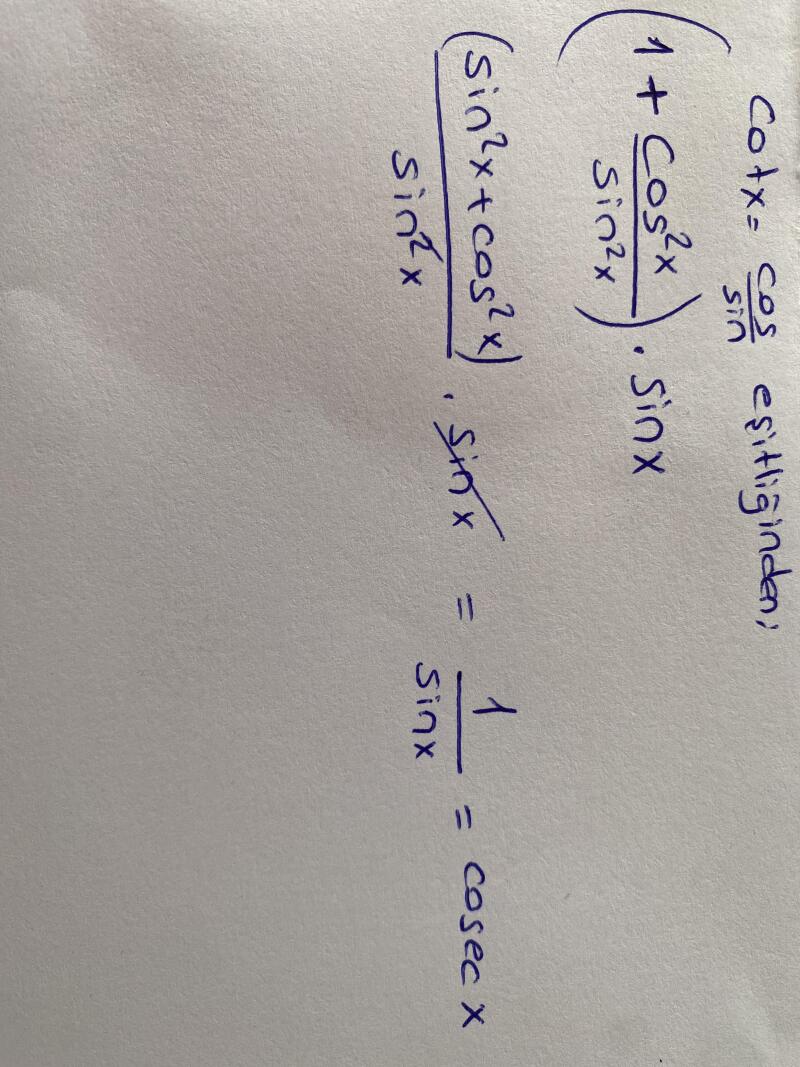 Cotx = cos/sin eşitliğinden;
(1 + cos²x/sin²x) . sinx
(sin²x + cos²x)/sin²x . sinx = 1/sinx = cosec x